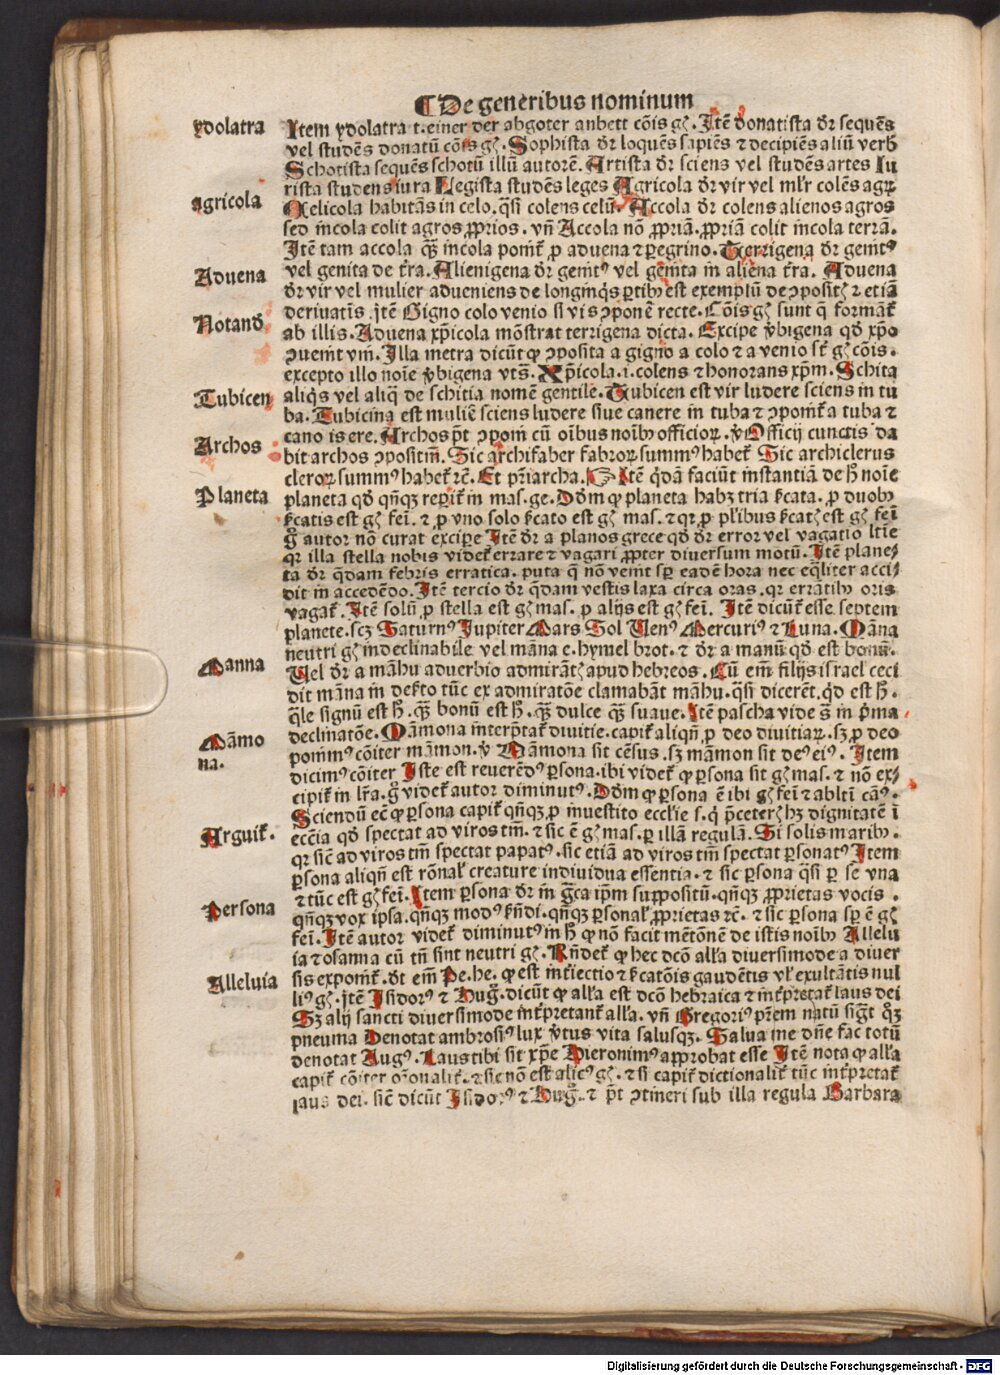 De generibus nominum
ydolatra
Item ydolatra t. einer der abgoter anbett cōis gꝫ. Itē donatista dr̄ sequēs
vel studēs donatū cōis gꝫ. Sophista dr̄ loquēs sapiēs ⁊ decipiēs aliū verb̄
Schotista sequēs schotū illū autorē. Artista dr̄ sciens vel studēs artes Iu
rista studens iura Legista studēs leges Agricola dr̄ vir vel mlr̄ colēs agꝝ
agricola
Celicola habitās in celo. q̄si colens celū. Accola dr̄ colens alienos agros
sed īcola colit agros ꝓprios. vn̄ Accola nō ꝓpriā. ꝓpriā colit īcola terrā.
Itē tam accola qꝫ īcola ponit̄ ꝓ aduena ⁊ ꝑegrino. Terrigena dr̄ genitꝰ
vel genita de t̄ra. Alienigena dr̄ genitꝰ vel genita in aliena t̄ra. Aduena
Aduena
dr̄ vir vel mulier adueniens de longinq̇s ꝑtibꝫ est exemplū de ꝯpositꝭ ⁊ etiā
deriuatis. itē Gigno colo venio si vis ꝯponē recte. Cōis gꝫ sunt q̄ formāt̄
Notand̄
ab illis. Aduena xp̄icola mōstrat terrigena dicta. Excipe v̄bigena qd̄ xp̄o
ꝯuenit vni. Illa metra dicūt ꝙ ꝯposita a gigno a colo ⁊ a venio st̄ gꝫ cōis.
excepto illo noīe v̄bigena vts̄. Xp̄icola .i. colens ⁊ honorans xp̄m. Schita
aliq̇s vel aliq̄ de schitia nomē gentile. Tubicen est vir ludere sciens in tu
Tubicen
ba. Tubicina est muliē sciens ludere siue canere in tuba ⁊ ꝯponit̄ a tuba ⁊
cano is ere. Archos pt̄ ꝯponi cū oībus noībꝫ officioꝝ. v̄ Officij cunctis da
Archos
bit archos ꝯpositin̄. Sic archifaber fabroꝝ summꝰ habet̄ Sic archiclerus
cleroꝝ summꝰ habet̄ ⁊c̄. Et pr̄iarcha. Itē q̇dā faciūt instantiā de h̄ noīe
Planeta
planeta qd̄ qn̄qꝫ reperit̄ in mas. ge. Dōm ꝙ planeta habꝫ tria sīcata. ꝓ duobꝫ
sīcatis est gꝫ feī. ⁊ ꝓ vno solo sīcato est gꝫ mas. ⁊ qꝛ ꝓ pl̄ibus sīcatꝭ est gꝫ feī
g̊ autor nō curat excipe Itē dr̄ a planos grece qd̄ dr̄ error vel vagatio ltīe
qꝛ illa stella nobis videt̄ errare ⁊ vagari ꝓpter diuersum motū. Itē plane⸗
ta dr̄ q̄dam febris erratica. puta q̄ nō venit sp̄ eadē hora nec eq̄liter acci⸗
dit in accedēdo. Itē tercio dr̄ q̄dam vestis laxa circa oras. qꝛ errātibꝫ oris
vagat̄. Itē solū ꝓ stella est gꝫ mas. ꝓ alijs est gꝫ feī. Itē dicūt̄ esse septem
planete. scꝫ Saturnꝰ Iupiter Mars Sol Uenꝰ Mercuriꝰ ⁊ Luna. Māna
neutri gꝫ indeclinabile vel māna e. hymel brot. ⁊ dr̄ a manū qd̄ est bonū.
Manna
Uel dr̄ a māhu aduerbio admirātꝭ apud hebreos. Cū em̄ filijs israel ceci
dit māna in defto tūc ex admiratōe clamabāt māhu. q̄si dicerēt. qd̄ est h̄.
q̄le signū est h̄. qꝫ bonū est h̄. qꝫ dulce qꝫ suaue. Itē pascha vide s̄ in p̄ma
declinatōe. Māmona interp̄tat̄ diuitie. capit̄ aliqn̄ ꝓ deo diuitiaꝝ. sꝫ ꝓ deo
Māmo
na.
ponimꝰ cōiter māmon. v̄ Māmona sit cēsus. sꝫ māmon sit deꝰ eiꝰ. Item
dicimꝰ cōiter Iste est reuerēdꝰ ꝑsona. ibi videt̄ ꝙ ꝑsona sit gꝫ mas. ⁊ nō ex⸗
cipit̄ in lr̄a. g̊ videt̄ autor diminutꝰ. Dōm ꝙ ꝑsona ē ibi gꝫ feī ⁊ ablti cāꝰ.
Sciendū ecē ꝙ ꝑsona capit̄ qn̄qꝫ ꝓ inuestito ecclīe s. q̇ p̄ceterꝭ hꝫ dignitatē ī
Arguit̄.
eccīa qd̄ spectat ad viros tm̄. ⁊ sic ē gꝫ mas. ꝑ illā regulā. Si solis maribꝫ.
qꝛ sic̄ ad viros tm̄ spectat papatꝰ. sic etiā ad viros tm̄ spectat ꝑsonatꝰ Item
ꝑsona aliqn̄ est rōnal̄ creature indiuidua essentia. ⁊ sic ꝑsona q̄si ꝑ se vna
⁊ tūc est gꝫ feī. Item ꝑsona dr̄ in gr̄ca ip̄m suppositū. qn̄qꝫ ꝓprietas vocis.
Persona
qn̄qꝫ vox ipsa. qn̄qꝫ modꝰ sīn̄di. qn̄qꝫ ꝑsonal̄ ꝓprietas ⁊c̄. ⁊ sic ꝑsona sp̄ ē gꝫ
feī. Itē autor videt̄ diminutꝰ in h̄ ꝙ nō facit mētōnē de istis noībꝫ Allelu
ia ⁊ osanna cū tn̄ sint neutri gꝫ. Rn̄det̄ ꝙ hec dcō alla diuersimode a diuer
Alleluia
sis exponit̄. dt̄ em̄ Pe. he. ꝙ est int̄iectio ⁊ sīcatōis gaudētis vl̄ exultātis nul
liꝰ gꝫ. itē Isidorꝰ ⁊ Hug̊. dicūt ꝙ alla est dcō hebraica ⁊ int̄pretat̄ laus dei
Sꝫ alij sancti diuersimode int̄pretant̄ alla. vn̄ Gregoriꝰ pr̄em natū sig̊t qꝫ
pneuma Denotat ambrosiꝰ lux v̄tus vita salusqꝫ. Salua me dn̄e fac totū
denotat Augꝰ. Laus tibi sit xp̄e Hieronimꝰ approbat esse Itē nota ꝙ alla
capit̄ cōiter orōnalit̄. ⁊ sic nō est alicꝰ gꝫ. ⁊ si capit̄ dictionalit̄ tūc int̄pretat̄
laus dei. sic̄ dicūt Isidorꝰ ⁊ Hug̊. ⁊ pt̄ ꝯtineri sub illa regula Barbara
Digitalisierung gefördert durch die Deutsche Forschungsgemeinschaft - DFG